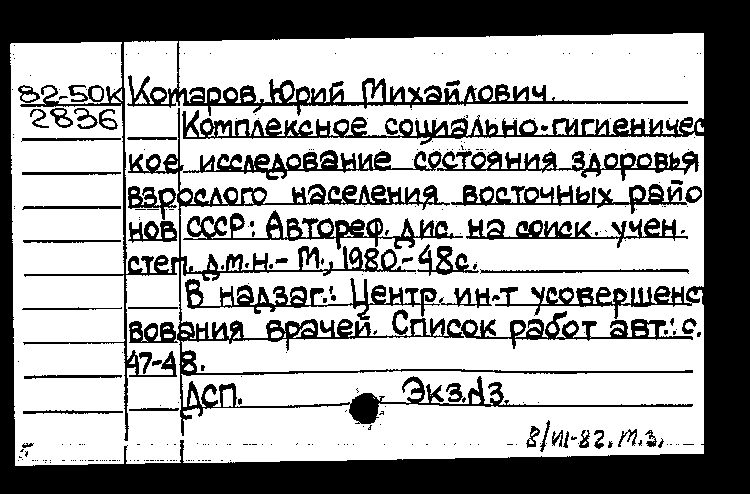 82-50К Котаров, Юрий Михайлович.
2836 Комплексное социально-гигиеничес
кое исследование состояния здоровья
взрослого населения восточных райо
нов СССР: Автореф. дис. на соиск. учен.
степ. д.м.н.- М., 1980.-48с.
В надзаг.: Центр. ин-т усовершенст
вования врачей. Список работ авт.: с.
47-48.
ДСП. Экз.№3.
8/VII-82. т.з.